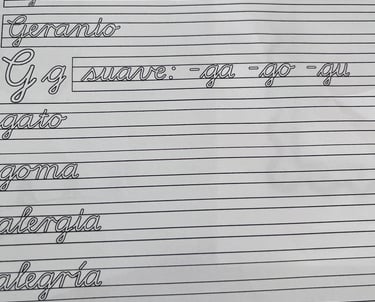 Geranio
G g suave: -ga -go -gu
gato
goma
alergia
alegría